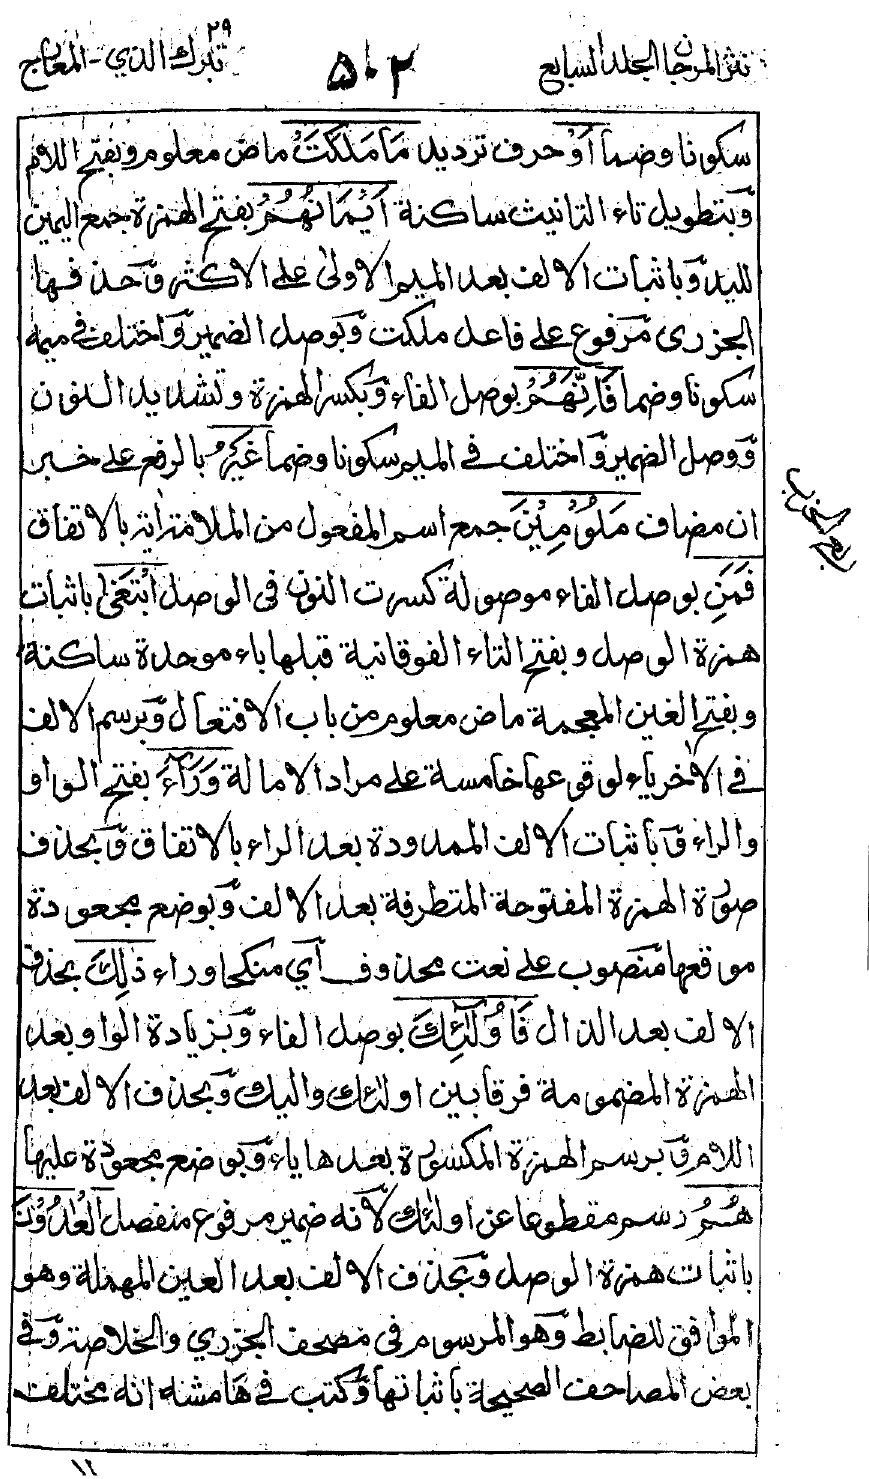 نثر المرجان الجلد السابع
۵۰۲
تبرك الذي - المعارج ۲۹
سكونا وضما اَوْ حرف ترديد مَا مَلَكَتْ ماض معلوم وبفتح اللام
وَبتطويل تاء التانيث ساكنة اَيْمَانُهُمْ بفتح الهمزة جمع اليمين
لليد وَباثبات الالف بعد الميم الاولى على الاكثر وَحذفها
الجزرى مَرفوع على فاعل ملكت وَبوصل الضمير وَاختلف فى ميمه
سكونا وضما فَاِنَّهُمْ بوصل الفاء وَبكسر الهمزة وتشديد النون
وَوصل الضمير وَاختلف فى الميم سكونا وضما غَيْرُ بالرفع على خبر
ان مضاف مَلُوْمِيْنَ جمع اسم المفعول من الملامة اٰية بالاتفاق
فَمَنِ بوصل الفاء موصولة كسرت النون فى الوصل ابْتَغٰى باثبات
همزة الوصل وبفتح التاء الفوقانية قبلها باء موحدة ساكنة
وبفتح الغين المعجمة ماض معلوم من باب الافتعال وَبرسم الالف
فى الاٰخر ياء لوقوعها خامسة على مراد الامالة وَرَآءَ بفتح الواو
والراء وَباثبات الالف الممدودة بعد الراء بالاتفاق وَبحذف
صورة الهمزة المفتوحة المتطرفة بعد الالف وَبوضع مجعودة
موقعها مَنصوب على نعت محذوف اَي منكحا وراء ذٰلِكَ بحذف
الالف بعد الذال فَاُولٰٓئِكَ بوصل الفاء وَبزيادة الواو بعد
الهمزة المضمومة فرقا بين اولٰئك واليك وَبحذف الالف بعد
اللام وَبرسم الهمزة المكسورة بعدها ياء وَبوضع مجعودة عليها
هُمُ رسم مقطوعا عن اولٰئك لاَنه ضمير مرفوع منفصل الْعٰدُوْنَ
باثبات همزة الوصل وَبحذف الالف بعد العين المهملة وهو
الموافق للضابط وَهو المرسوم فى مصحف الجزري والخلاصة وَفى
بعض المصاحف الصحيحة باثباتها وَكتب فى هَامشه انه مختلف
ربع الحزب
۱۲